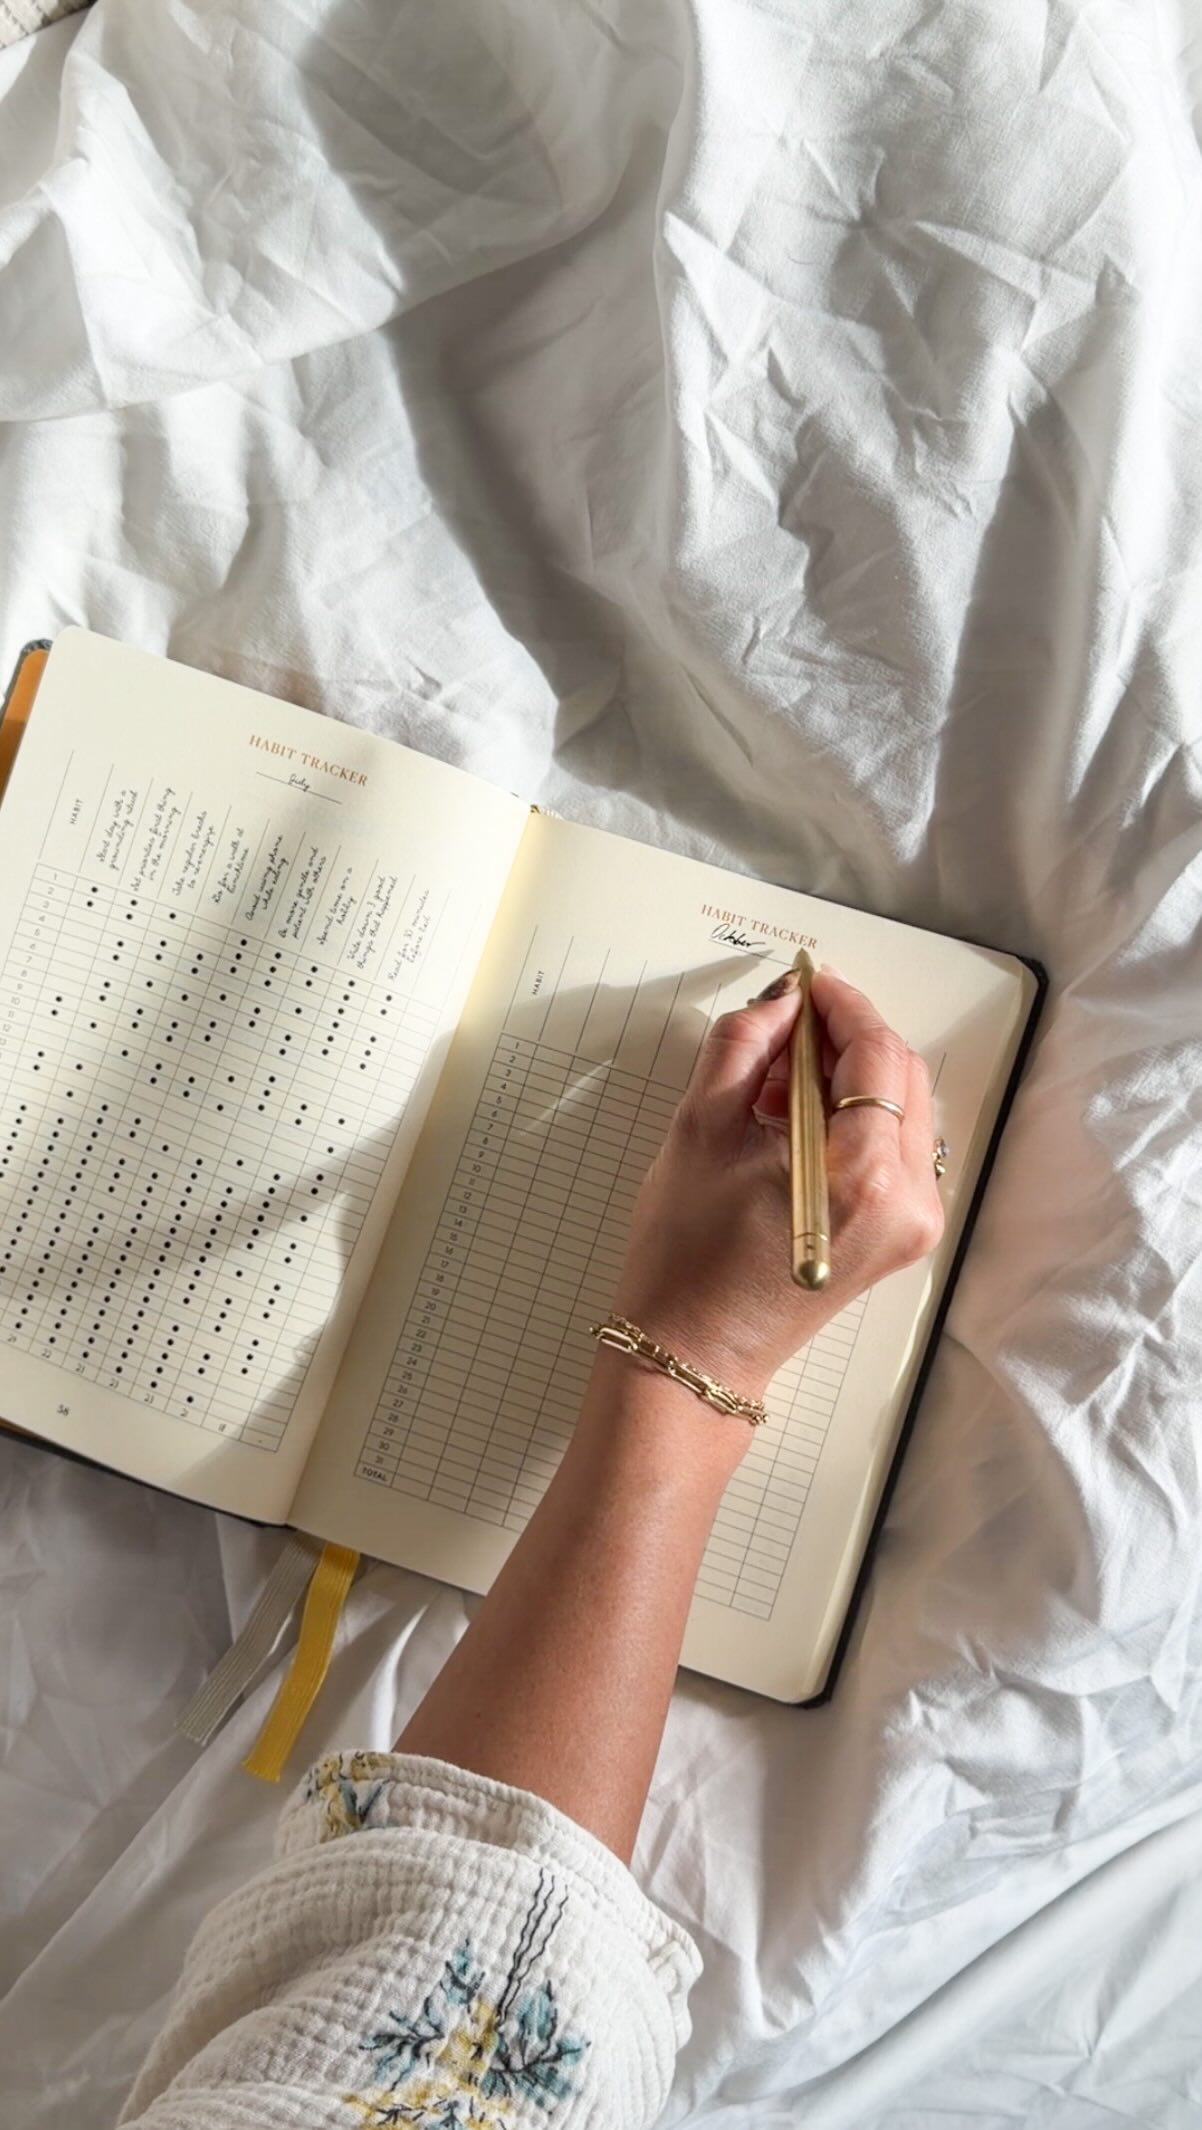 HABIT TRACKER
July
HABIT
Start day with a
grounding ritual
Set priorities first thing
in the morning
Take regular breaks
to re-energize
Go for a walk at
lunchtime
Avoid using phone
while eating
Be more gentle and
patient with others
Spend time on a
hobby
Write down 3 good
things that happened
Read for 30 minutes
before bed
1
2
3
4
5
6
7
8
9
58
HABIT TRACKER
October
HABIT
1
2
3
4
5
6
7
8
9
10
11
12
13
14
15
16
17
18
19
20
21
22
23
24
25
26
27
28
29
30
31
TOTAL